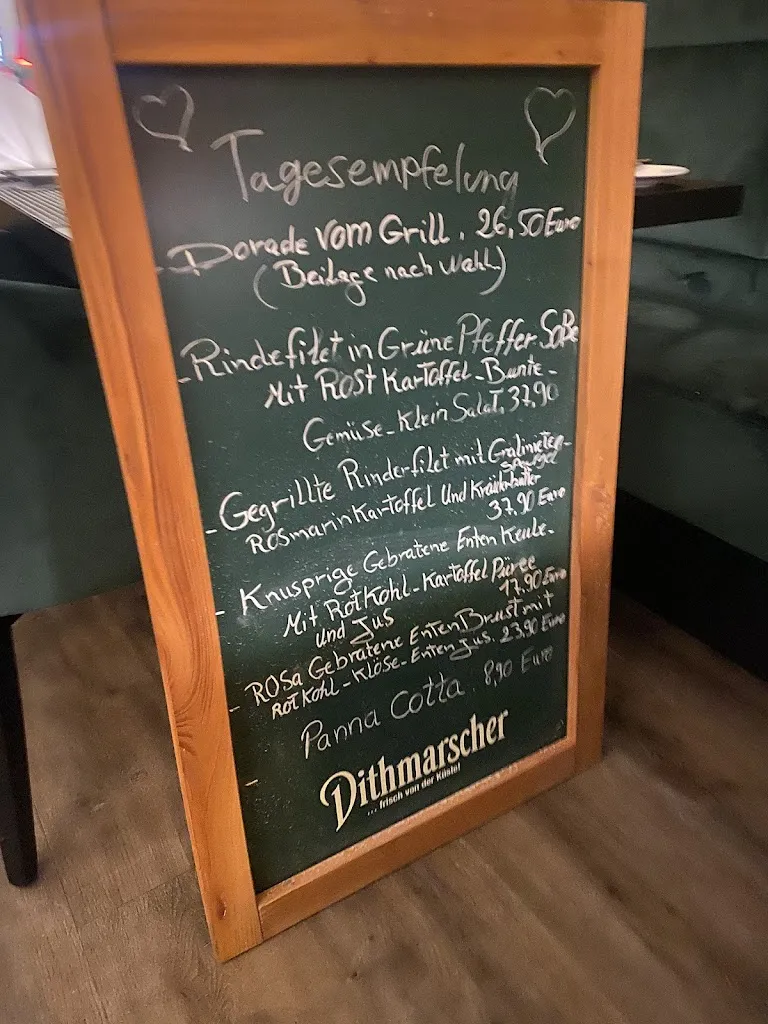 Tagesempfelung
- Dorade vom Grill. 26,50 Euro
(Beilage nach Wahl)
- Rindefilet in Grüne Pfeffer Soße
Mit Rost Kartoffel - Bunte -
Gemüse - Klein Salat, 37,90
- Gegrillte Rinderfilet mit
Spargel
Rosmarin Kartoffel und Kräuterbutter
37,90 Euro
- Knusprige Gebratene Enten Keule -
Mit Rotkohl - Kartoffel Püree
17,90 Euro
und Jus
- Rosa Gebratene Enten Brust mit
Rotkohl - Klöse - Enten jus. 23,90 Euro
- Panna Cotta 8,90 Euro
Dithmarscher
... frisch von der Küste!